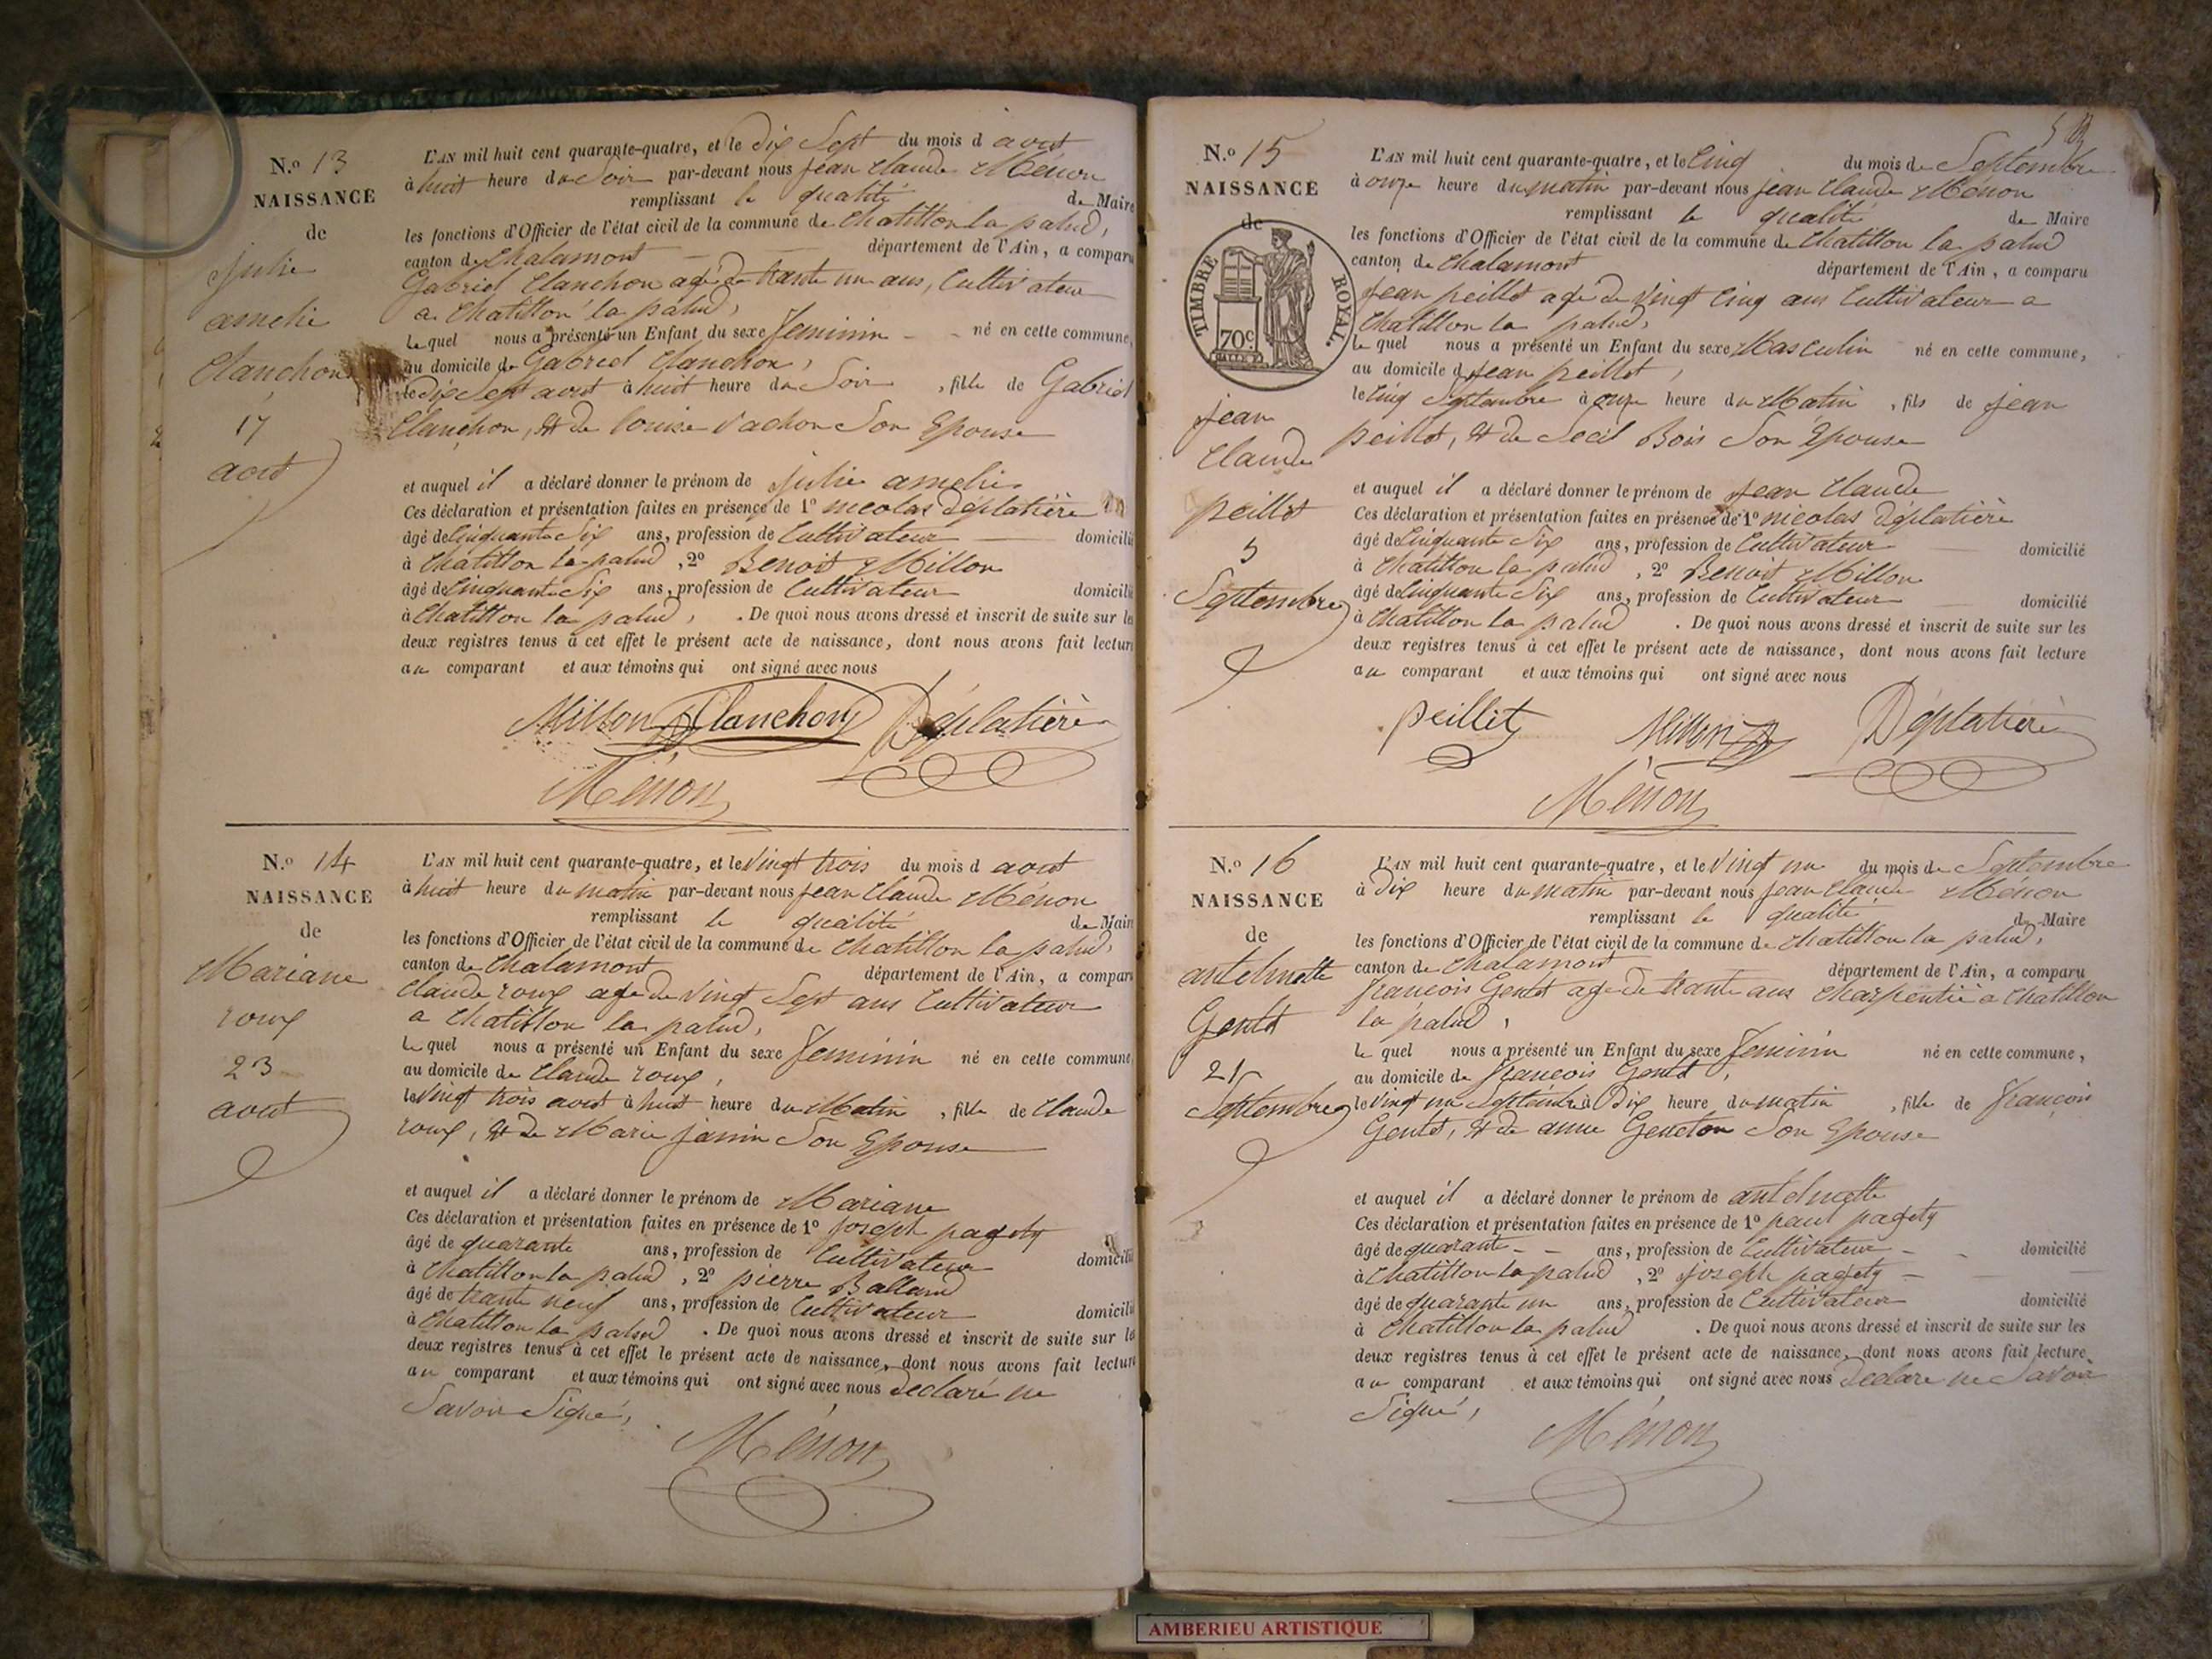 N.º 13
NAISSANCE
de
Julie
amelie
Clanchon
17
aout
L'AN mil huit cent quarante-quatre, et le Dix Sept du mois d aout
à huit heure du Soir par-devant nous jean Claude Ménon
remplissant la qualité de Maire
les fonctions d'Officier de l'état civil de la commune de Chatillon la palud,
canton de Chalamont département de l'Ain, a comparu
Gabriel Clanchon agé de trante un ans, Cultivateur
a Chatillon la palud,
Le quel nous a présenté un Enfant du sexe feminin né en cette commune,
au domicile de Gabriel Clanchon,
le Dix Sept aout à huit heure du Soir , fille de Gabriel
Clanchon, & de louise Vachon Son Epouse
et auquel il a déclaré donner le prénom de julie amelie
Ces déclaration et présentation faites en présence de 1º nicolas Déplatière
âgé de Cinquante Six ans, profession de Cultivateur domicilié
à Chatillon la palud , 2º Benoit Millon
âgé de Cinquante Six ans, profession de Cultivateur domicilié
à Chatillon la palud, . De quoi nous avons dressé et inscrit de suite sur les
deux registres tenus à cet effet le présent acte de naissance, dont nous avons fait lecture
au comparant et aux témoins qui ont signé avec nous
Millon Clanchon Déplatière
Ménon
N.º 14
NAISSANCE
de
Mariane
roux
23
aout
L'AN mil huit cent quarante-quatre, et le Vingt trois du mois d aout
à huit heure du matin par-devant nous jean Claude Ménon
remplissant la qualité de Maire
les fonctions d'Officier de l'état civil de la commune de Chatillon la palud,
canton de Chalamont département de l'Ain, a comparu
Claude roux age de Vingt Sept ans Cultivateur
a Chatillon la palud,
Le quel nous a présenté un Enfant du sexe feminin né en cette commune,
au domicile de Claude roux,
le Vingt trois aout à huit heure du Matin , fille de Claude
roux, & de Marie janin Son Epouse
et auquel il a déclaré donner le prénom de Mariane
Ces déclaration et présentation faites en présence de 1º joseph pagety
âgé de quarante ans, profession de Cultivateur domicilié
à Chatillon la palud , 2º pierre Balland
âgé de trante neuf ans, profession de Cultivateur domicilié
à Chatillon la palud . De quoi nous avons dressé et inscrit de suite sur les
deux registres tenus à cet effet le présent acte de naissance, dont nous avons fait lecture
au comparant et aux témoins qui ont signé avec nous Declaré ne
Savoir Signé,
Ménon
N.º 15
NAISSANCE
de
TIMBRE ROYAL.
70c.
jean
Claude
peillot
5
Septembre
L'AN mil huit cent quarante-quatre, et le Cinq du mois de Septembre
à onze heure du matin par-devant nous jean Claude Ménon
remplissant la qualité de Maire
les fonctions d'Officier de l'état civil de la commune de Chatillon la palud
canton de Chalamont département de l'Ain, a comparu
jean peillot age de Vingt Cinq ans Cultivateur a
Chatillon la palud,
Le quel nous a présenté un Enfant du sexe Masculin né en cette commune,
au domicile d jean peillot,
le Cinq Septembre à onze heure du Matin , fils de jean
peillot, & de Secil Bois Son Epouse
et auquel il a déclaré donner le prénom de jean Claude
Ces déclaration et présentation faites en présence de 1º nicolas Déplatière
âgé de Cinquante Six ans, profession de Cultivateur domicilié
à Chatillon la palud , 2º Benoit Millon
âgé de Cinquante Six ans, profession de Cultivateur domicilié
à Chatillon la palud . De quoi nous avons dressé et inscrit de suite sur les
deux registres tenus à cet effet le présent acte de naissance, dont nous avons fait lecture
au comparant et aux témoins qui ont signé avec nous
peillet Millon Déplatière
Ménon
N.º 16
NAISSANCE
de
antelmette
Gentet
21
Septembre
L'AN mil huit cent quarante-quatre, et le Vingt un du mois de Septembre
à Dix heure du matin par-devant nous jean Claude Ménon
remplissant la qualité de Maire
les fonctions d'Officier de l'état civil de la commune de Chatillon la palud,
canton de Chalamont département de l'Ain, a comparu
françois Gentet age de trante ans Charpentié a Chatillon
la palud,
Le quel nous a présenté un Enfant du sexe feminin né en cette commune,
au domicile de françois Gentet,
le Vingt un Septembre à Dix heure du matin , fille de françois
Gentet, & de anne Son Epouse
et auquel il a déclaré donner le prénom de antelmette
Ces déclaration et présentation faites en présence de 1º paul pagety
âgé de quarante ans, profession de Cultivateur domicilié
à Chatillon la palud , 2º joseph pagety
âgé de quarante un ans, profession de Cultivateur domicilié
à Chatillon la palud . De quoi nous avons dressé et inscrit de suite sur les
deux registres tenus à cet effet le présent acte de naissance, dont nous avons fait lecture
au comparant et aux témoins qui ont signé avec nous Declare ne Savoir
Signé,
Ménon
AMBERIEU ARTISTIQUE